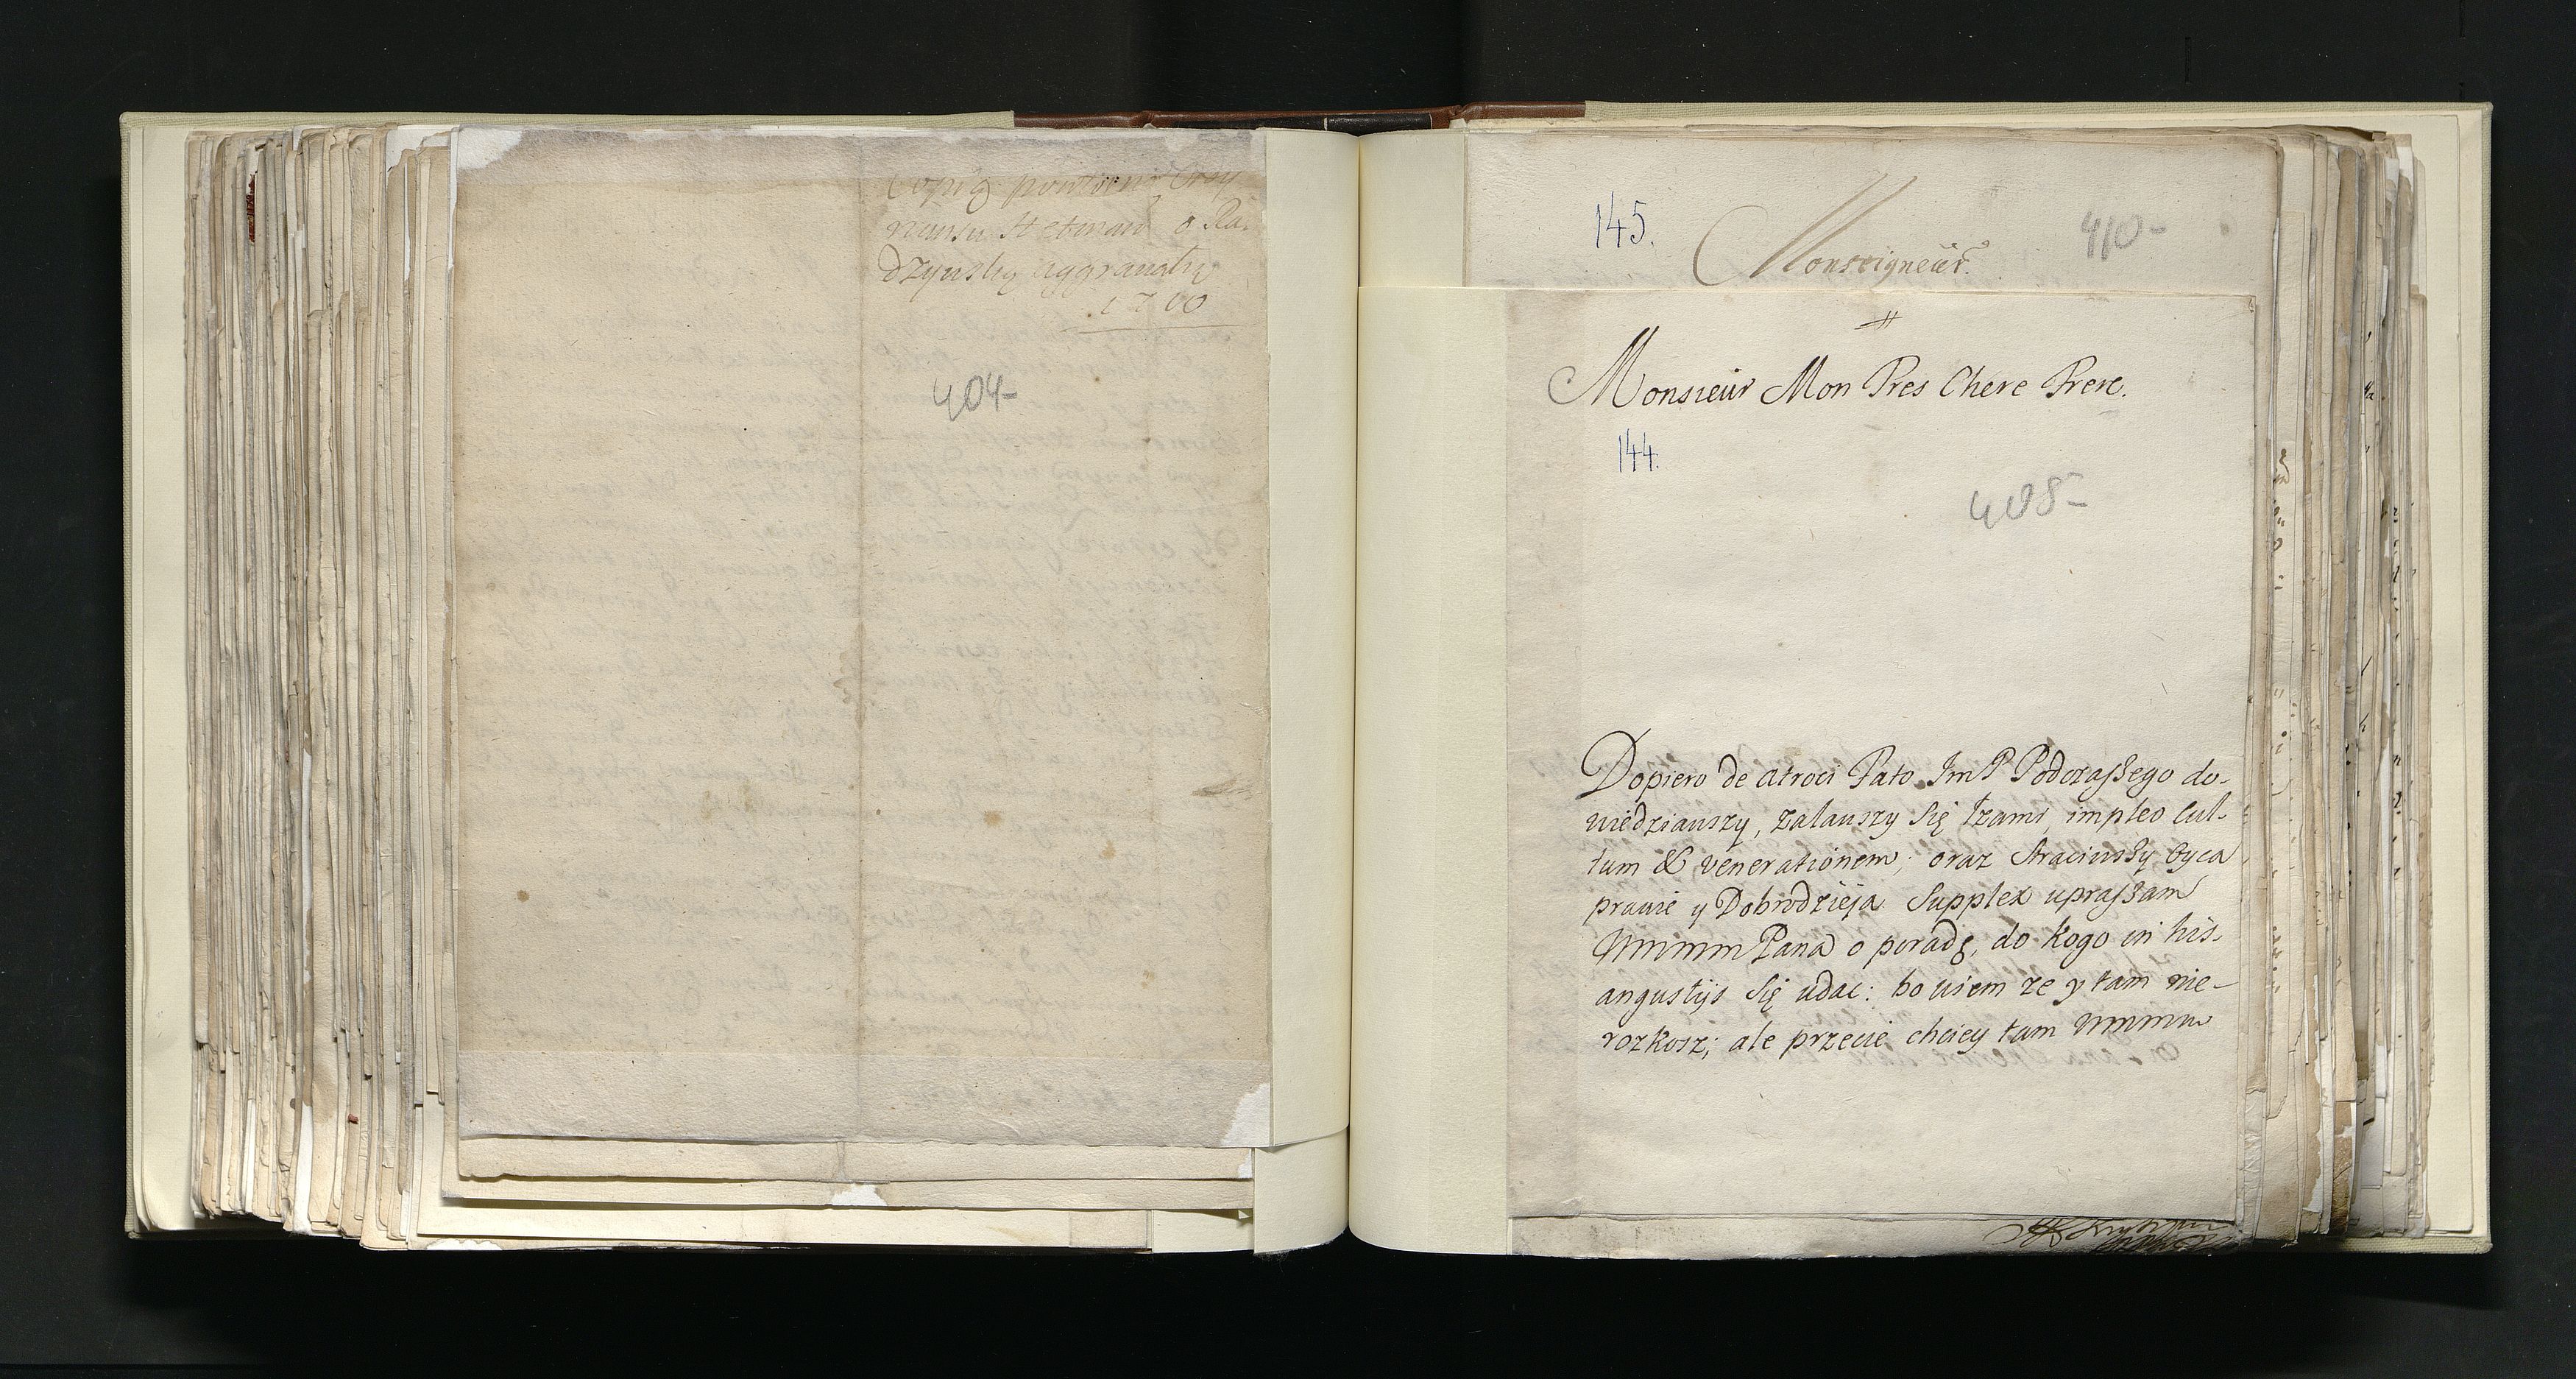 Copia powtorna Ordy
nansu Hetmań o Ra,
dzynską aggrandh
1700
404-
145.
410-
Monseigneür.
Monsieür Mon Tres Chere Frere.
144.
408-
Dopiero de atroci Fato Im P Podczaszego do-
wiedziawszy, zalawszy się łzami, impleo cul-
tum & venerationem; oraz straciwszy Oyca
prawie y Dobrodzieja Supplex upraszam
WmmmPana o poradę, do kogo in his
angustijs się udac: bo wiem ze y tam nie-
rozkosz; ale przecie chciey tam Wmmm